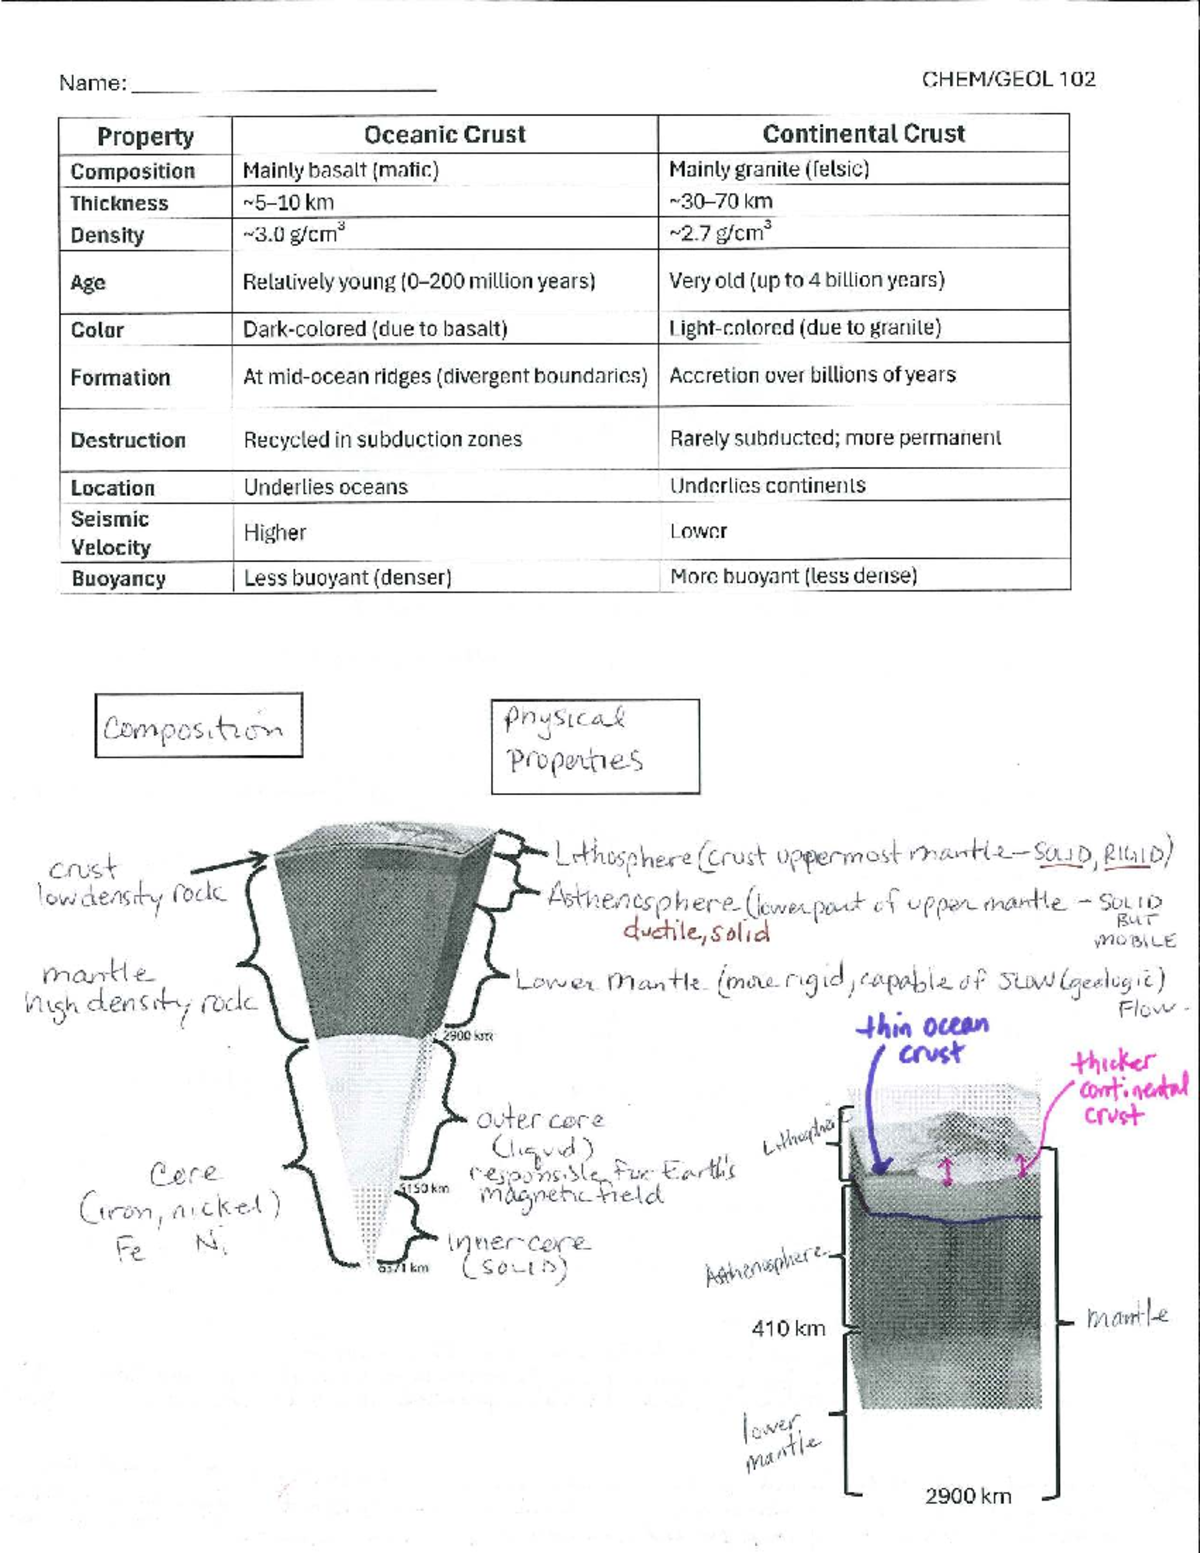 Name:
CHEM/GEOL 102
Property Oceanic Crust Continental Crust
Composition Mainly basalt (mafic) Mainly granite (felsic)
Thickness ~5–10 km ~30–70 km
Density ~3.0 g/cm³ ~2.7 g/cm³
Age Relatively young (0–200 million years) Very old (up to 4 billion years)
Color Dark-colored (due to basalt) Light-colored (due to granite)
Formation At mid-ocean ridges (divergent boundaries) Accretion over billions of years
Destruction Recycled in subduction zones Rarely subducted; more permanent
Location Underlies oceans Underlies continents
Seismic
Velocity Higher Lower
Buoyancy Less buoyant (denser) More buoyant (less dense)
Composition
Physical
Properties
crust
low density rock
Lithosphere (crust uppermost mantle – SOLID, RIGID)
Asthenosphere (lower part of upper mantle – SOLID
BUT
MOBILE
ductile, solid
mantle
high density rock
Lower Mantle (more rigid, capable of slow (geologic)
Flow.
2900 km
thin ocean
crust
thicker
continental
crust
outer core
(liquid)
responsible for Earth's
magnetic field
5150 km
Core
(iron, nickel)
Fe Ni
inner core
(SOLID)
6371 km
Lithosphere
Asthenosphere
410 km
mantle
lower
mantle
2900 km